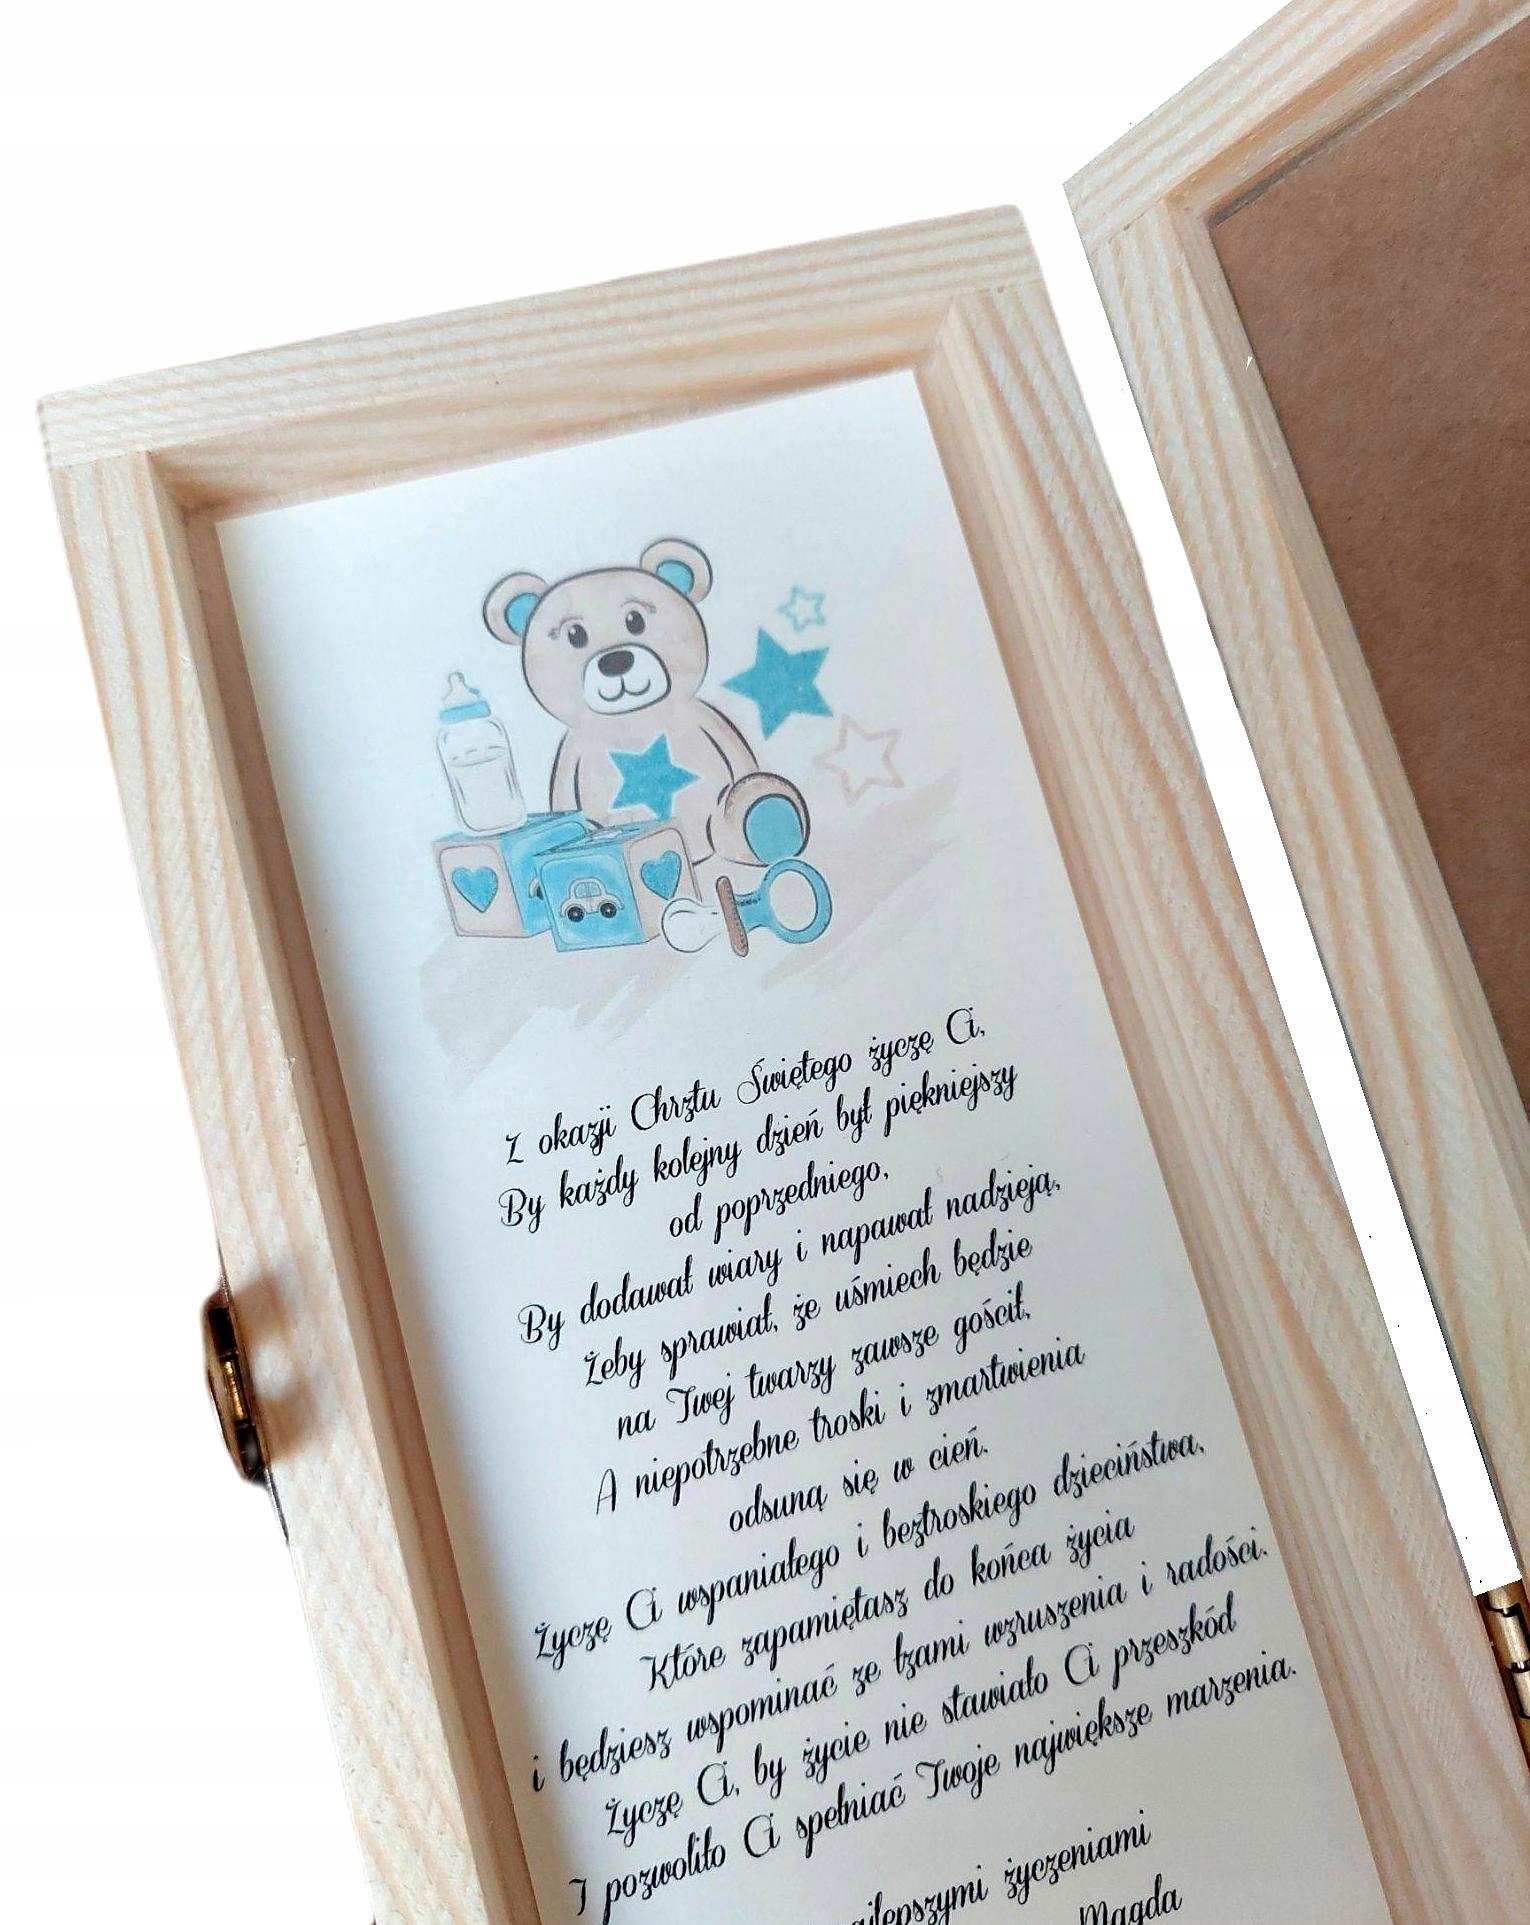 Z okazji Chrztu Świętego życzę Ci,
By każdy kolejny dzień był piękniejszy
od poprzedniego,
By dodawał wiary i napawał nadzieją,
Żeby sprawiał, że uśmiech będzie
na Twej twarzy zawsze gościł,
A niepotrzebne troski i zmartwienia
odsuną się w cień.
Życzę Ci wspaniałego i beztroskiego dzieciństwa,
Które zapamiętasz do końca życia
i będziesz wspominać ze łzami wzruszenia i radości.
Życzę Ci, by życie nie stawiało Ci przeszkód
I pozwoliło Ci spełniać Twoje największe marzenia.
życzeniami
Magda